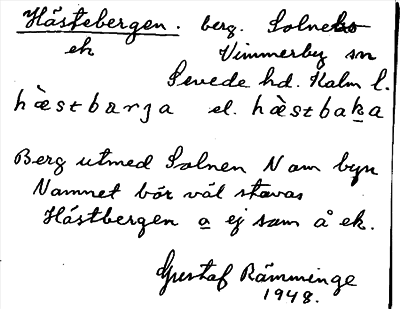 Hästebergen. berg. Solnebo
ek Vimmerby sn
Sevede hd. Kalm l.
hæ̀stbærja el. hæ̀stbaka
Berg utmed Solnen N om byn
Namnet bör väl stavas
Hästbergen o ej som å ek.
Gustaf Rämminge
1948.